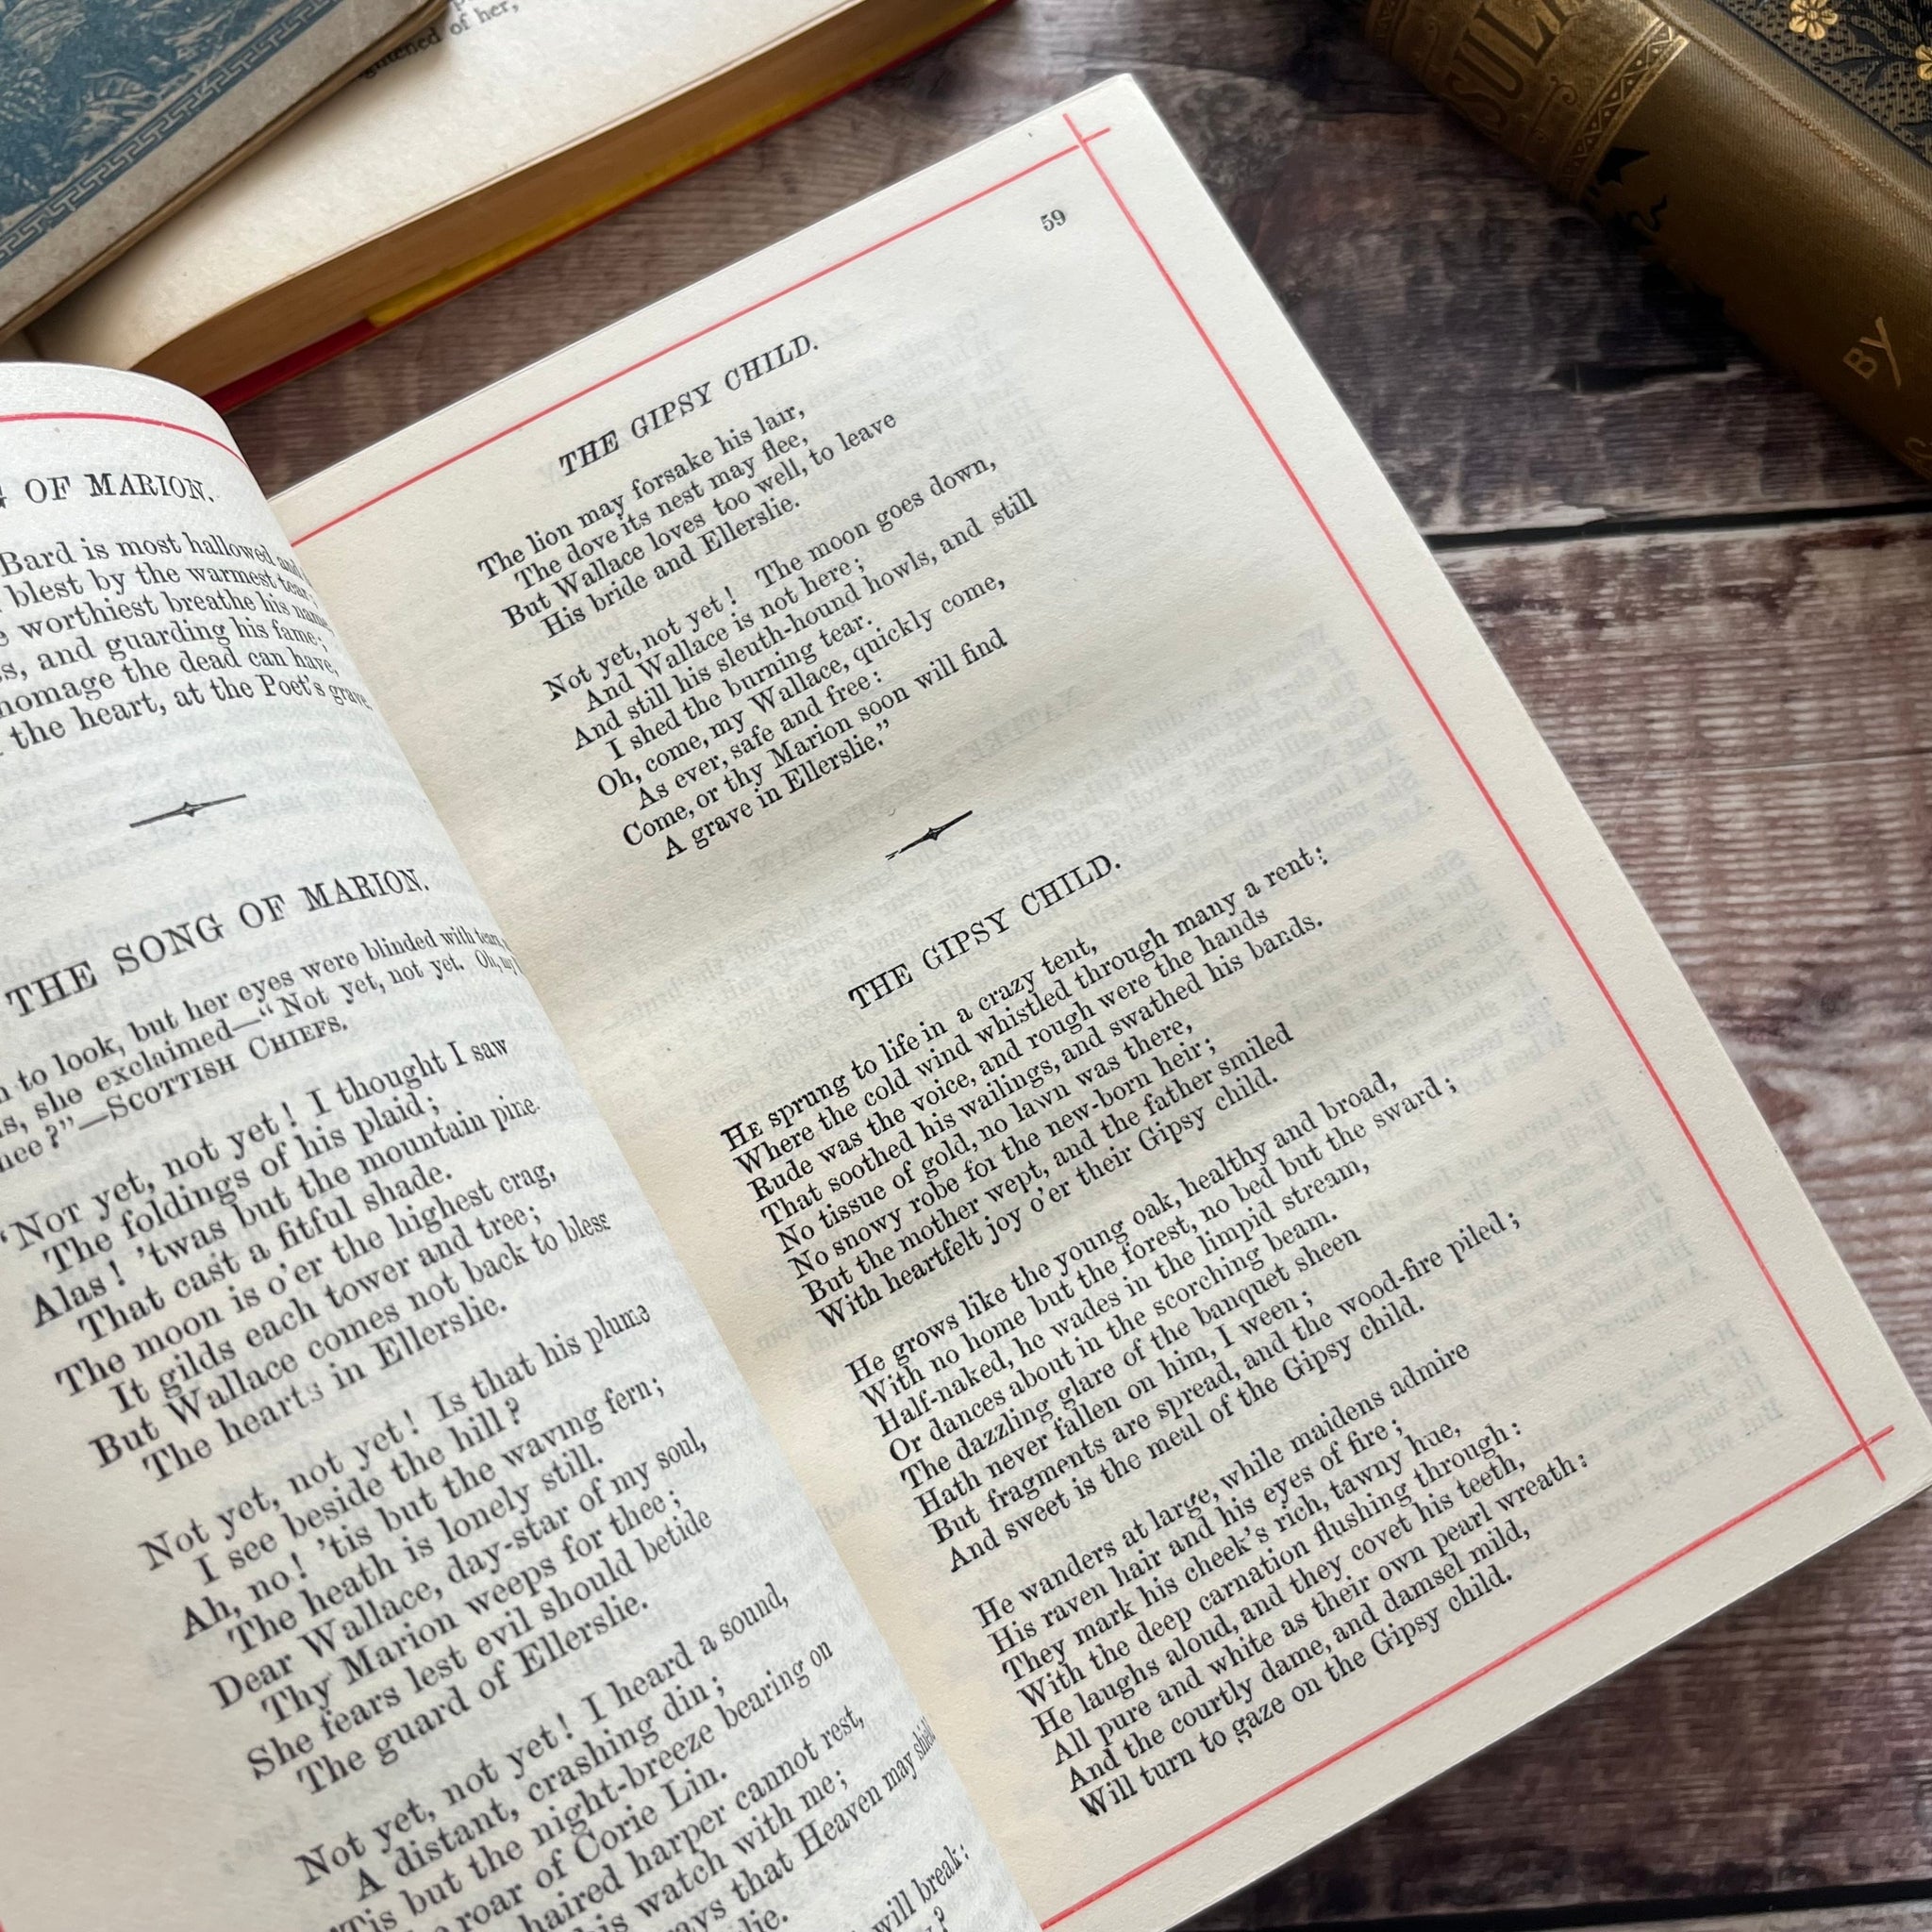 of her,
SULA
BY
OF MARION.
Bard is most hallowed and
blest by the warmest tear;
worthiest breathe his name,
and guarding his fame;
homage the dead can have,
the heart, at the Poet's grave.
THE SONG OF MARION.
to look, but her eyes were blinded with tears,
she exclaimed—“Not yet, not yet. Oh, my
—SCOTTISH CHIEFS.
“NOT yet, not yet! I thought I saw
The foldings of his plaid;
Alas! 'twas but the mountain pine
That cast a fitful shade.
The moon is o'er the highest crag,
It gilds each tower and tree;
But Wallace comes not back to bless
The hearts in Ellerslie.
Not yet, not yet! Is that his plume
I see beside the hill?
Ah, no! 'tis but the waving fern;
The heath is lonely still.
Dear Wallace, day-star of my soul,
Thy Marion weeps for thee;
She fears lest evil should betide
The guard of Ellerslie.
Not yet, not yet! I heard a sound,
A distant, crashing din;
'Tis but the night-breeze bearing on
roar of Corie Lin.
haired harper cannot rest,
his watch with me;
that Heaven may shield
will break:
59
THE GIPSY CHILD.
The lion may forsake his lair,
The dove its nest may flee,
But Wallace loves too well, to leave
His bride and Ellerslie.
Not yet, not yet! The moon goes down,
And Wallace is not here;
And still his sleuth-hound howls, and still
I shed the burning tear.
Oh, come, my Wallace, quickly come,
As ever, safe and free:
Come, or thy Marion soon will find
A grave in Ellerslie.”
THE GIPSY CHILD.
HE sprung to life in a crazy tent,
Where the cold wind whistled through many a rent:
Rude was the voice, and rough were the hands
That soothed his wailings, and swathed his bands.
No tissue of gold, no lawn was there,
No snowy robe for the new-born heir;
But the mother wept, and the father smiled
With heartfelt joy o'er their Gipsy child.
He grows like the young oak, healthy and broad,
With no home but the forest, no bed but the sward;
Half-naked, he wades in the limpid stream,
Or dances about in the scorching beam.
The dazzling glare of the banquet sheen
Hath never fallen on him, I ween;
But fragments are spread, and the wood-fire piled;
And sweet is the meal of the Gipsy child.
He wanders at large, while maidens admire
His raven hair and his eyes of fire;
They mark his cheek's rich, tawny hue,
With the deep carnation flushing through:
He laughs aloud, and they covet his teeth,
All pure and white as their own pearl wreath:
And the courtly dame, and damsel mild,
Will turn to gaze on the Gipsy child.